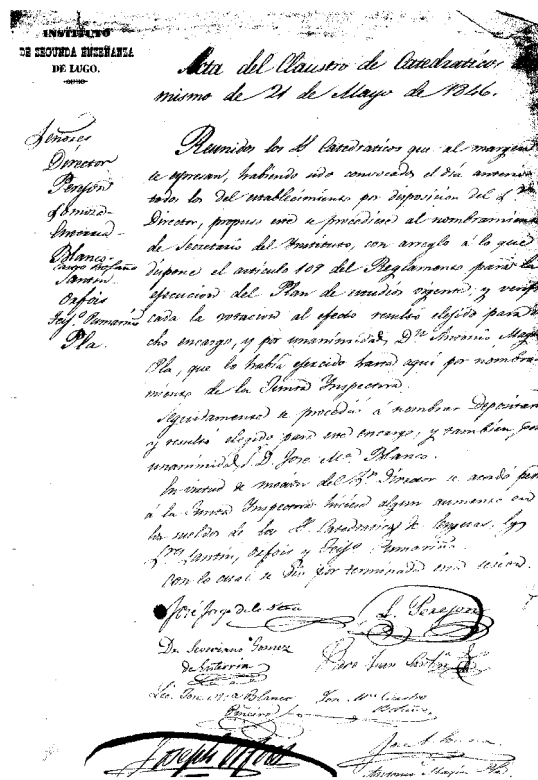 INSTITUTO
DE SEGUNDA ENSEÑANZA
DE LUGO.
Acta del Claustro de Catedraticos
mismo de 21 de Mayo de 1846.
Señores
Director
Perejon
Blanco
Santin
Orfois
Pla.
Reunidos los SS. Catedraticos que al margen
se espresan, habiendo sido convocados el dia anterior
todos los del establecimiento por disposicion del Sr.
Director, propuso este se procediese al nombramiento
de Secretario del Instituto, con arreglo á lo que
dispone el articulo 109 del Reglamento para la
ejecucion del Plan de estudios vigente, y verifi
cada la votacion al efecto resultó elejido para di
cho encargo, y por unanimidad, Dn. Antonio
Pla, que lo habia ejercido hasta aqui por nombra
miento de la Junta Inspectora.
Seguidamente se procedió á nombrar Depositario
y resultó elejido para este encargo, y tambien por
unanimidad, D. José Ma. Blanco.
En virtud de mocion del Sr. Director se acordó
á la Junta Inspectora hiciese algun aumento en
los sueldos de los SS. Catedraticos de
Santin, Orfois y
Con lo cual se dió por terminada esta sesion.
José Jorge de la
Perejon
Dr. Severiano Gomez
Juan Santin
Lic. José Ma. Blanco
José Ma. Castro
Joseph Orfois
Antonio Pla